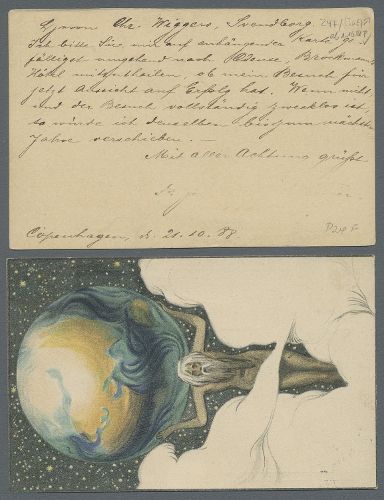 Herrn Chr. Wiggers, Svendborg.
Ich bitte Sie, mir auf anhängender Karte ge-
fälligst umgehend nach Odense, Brockmanns
Hôtel mitzutheilen, ob mein Besuch für
jetzt Aussicht auf Erfolg hat. Wenn nicht
und der Besuch vollständig zwecklos ist,
so würde ich denselben bis zum nächsten
Jahre verschieben. —
Mit aller Achtung grüßt
Copenhagen, d. 21.10.88